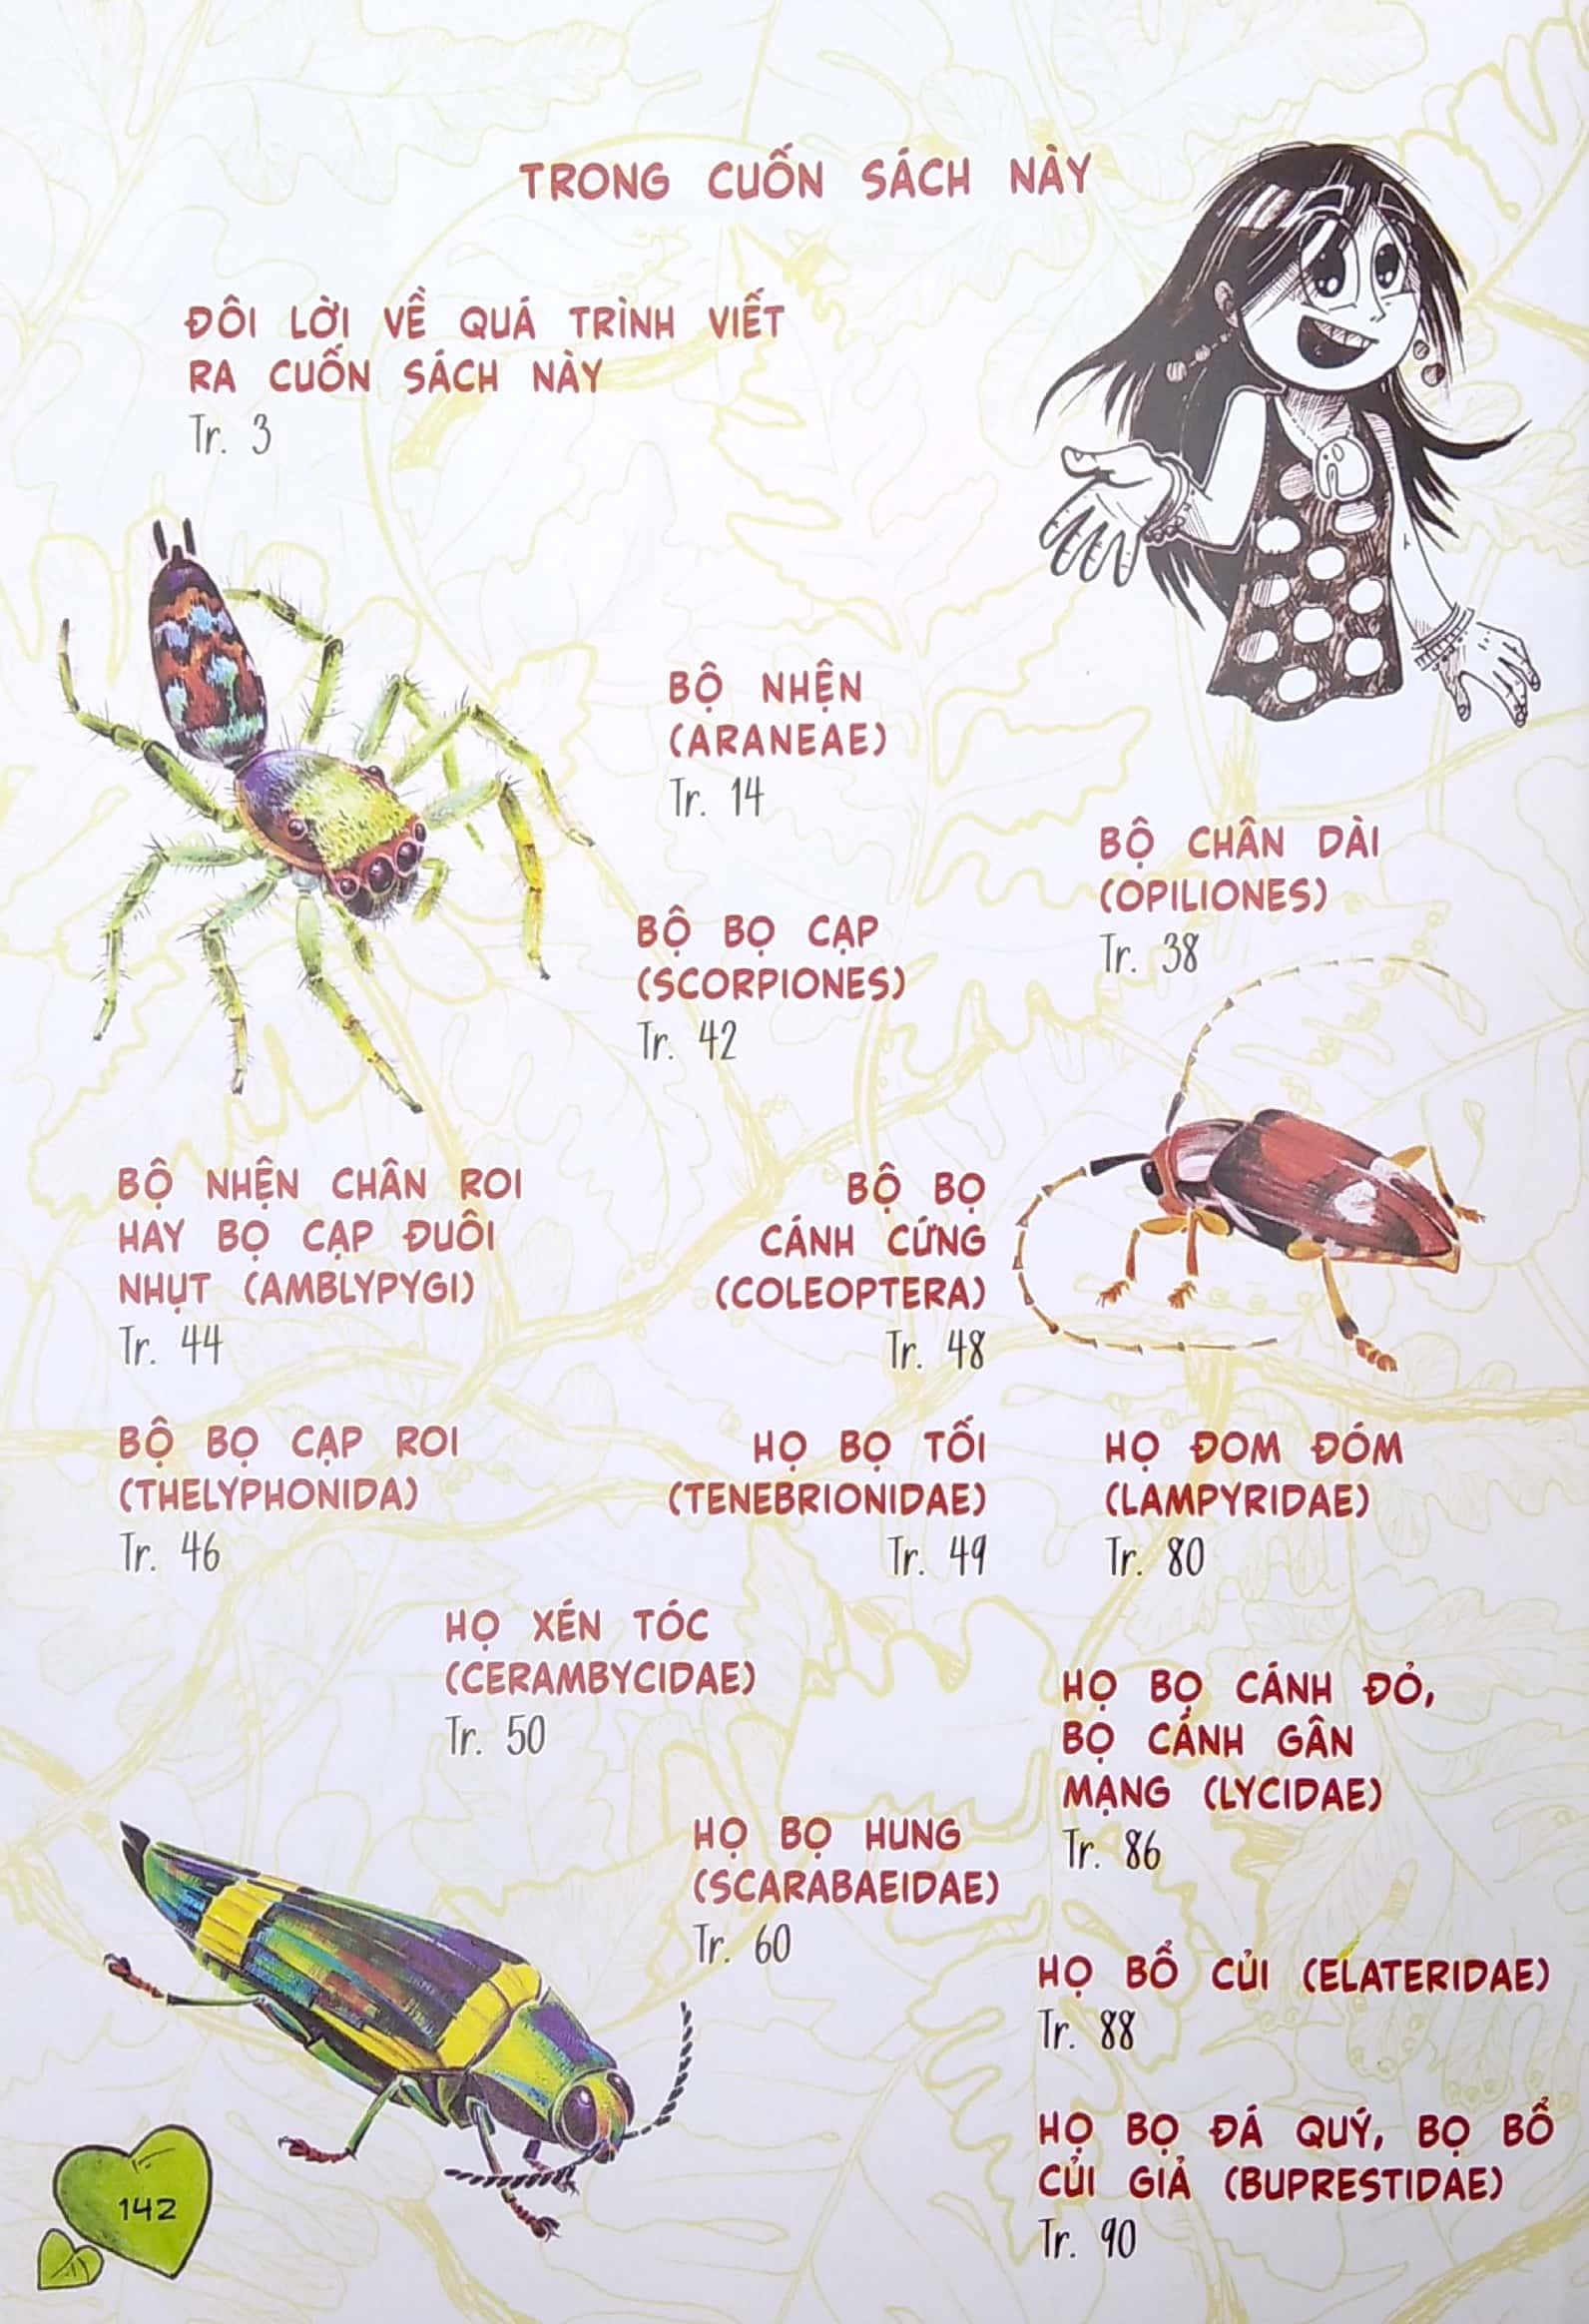 TRONG CUỐN SÁCH NÀY
ĐÔI LỜI VỀ QUÁ TRÌNH VIẾT
RA CUỐN SÁCH NÀY
Tr. 3
BỘ NHỆN
(ARANEAE)
Tr. 14
BỘ CHÂN DÀI
(OPILIONES)
Tr. 38
BỘ BỌ CẠP
(SCORPIONES)
Tr. 42
BỘ NHỆN CHÂN ROI
HAY BỌ CẠP ĐUÔI
NHỤT (AMBLYPYGI)
Tr. 44
BỘ BỌ
CÁNH CỨNG
(COLEOPTERA)
Tr. 48
BỘ BỌ CẠP ROI
(THELYPHONIDA)
Tr. 46
HỌ BỌ TỐI
(TENEBRIONIDAE)
Tr. 49
HỌ ĐOM ĐÓM
(LAMPYRIDAE)
Tr. 80
HỌ XÉN TÓC
(CERAMBYCIDAE)
Tr. 50
HỌ BỌ CÁNH ĐỎ,
BỌ CÁNH GÂN
MẠNG (LYCIDAE)
Tr. 86
HỌ BỌ HUNG
(SCARABAEIDAE)
Tr. 60
HỌ BỔ CỦI (ELATERIDAE)
Tr. 88
HỌ BỌ ĐÁ QUÝ, BỌ BỔ
CỦI GIẢ (BUPRESTIDAE)
Tr. 90
142